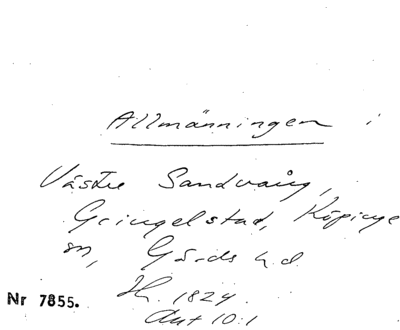 Allmänningen i
Västre Sandvång,
Gringelstad, Köpinge
sn, Gärds hd
1824.
Akt 10:1
Nr 7855.